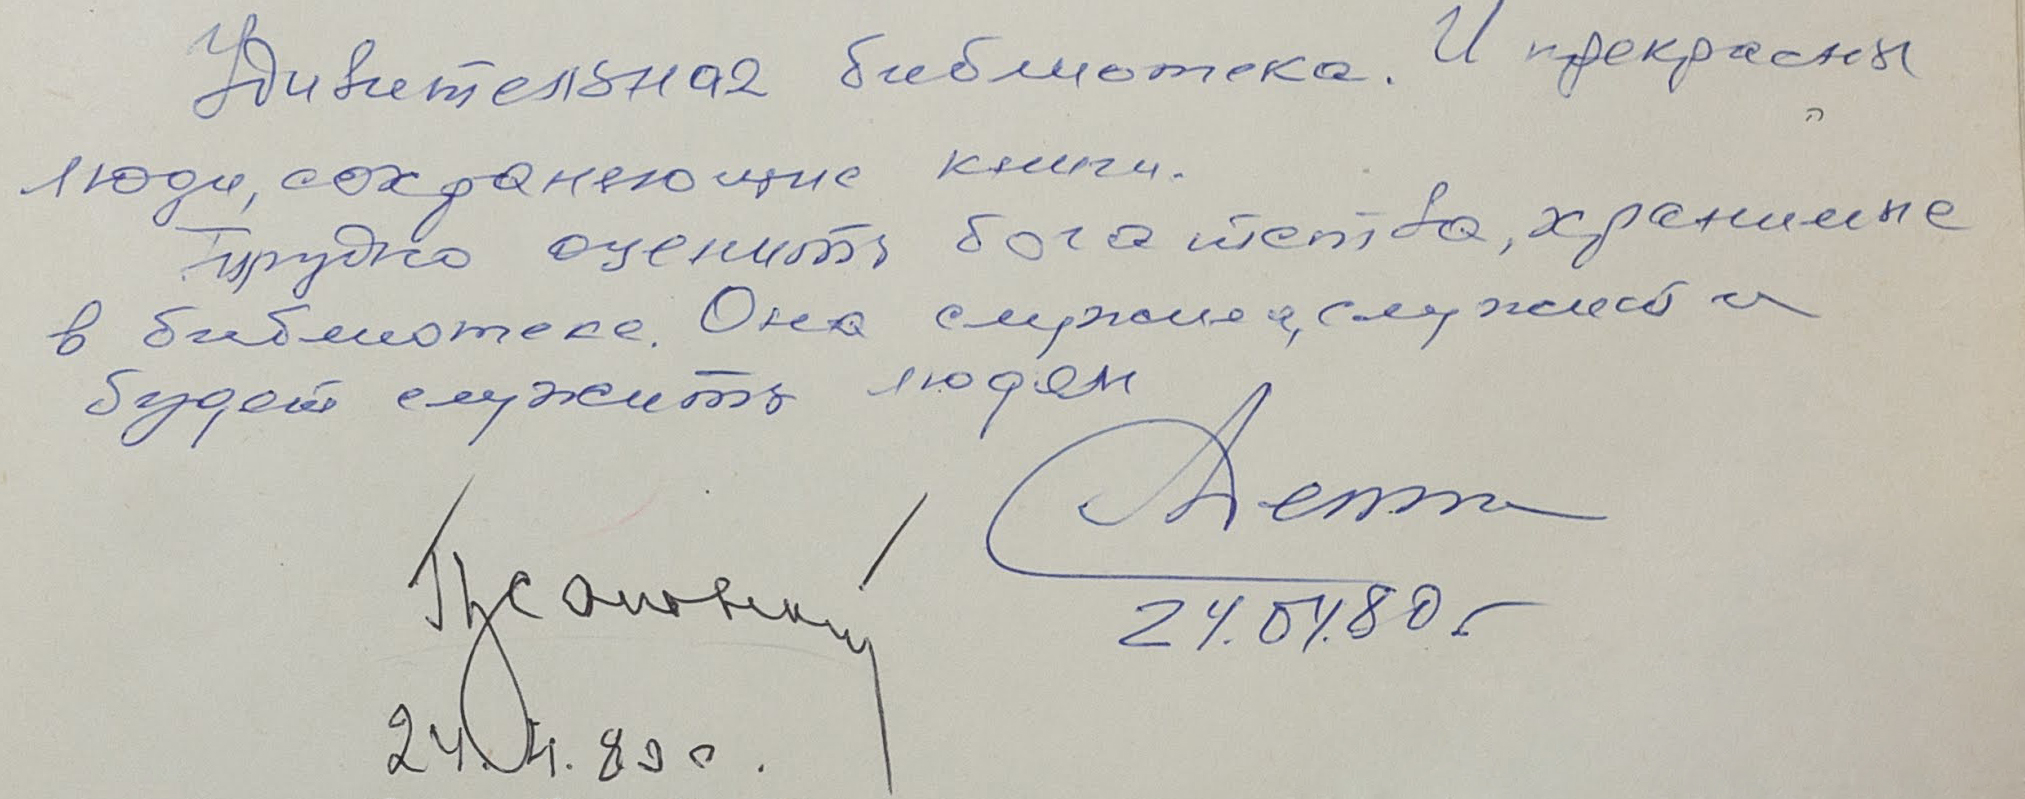 Удивительная библиотека. И прекрасны
люди, сохраняющие книги.
Трудно оценить богатства, хранимые
в библиотеке. Она служила, служит и
будет служить людям
24.04.80 г
24.4.80 г.